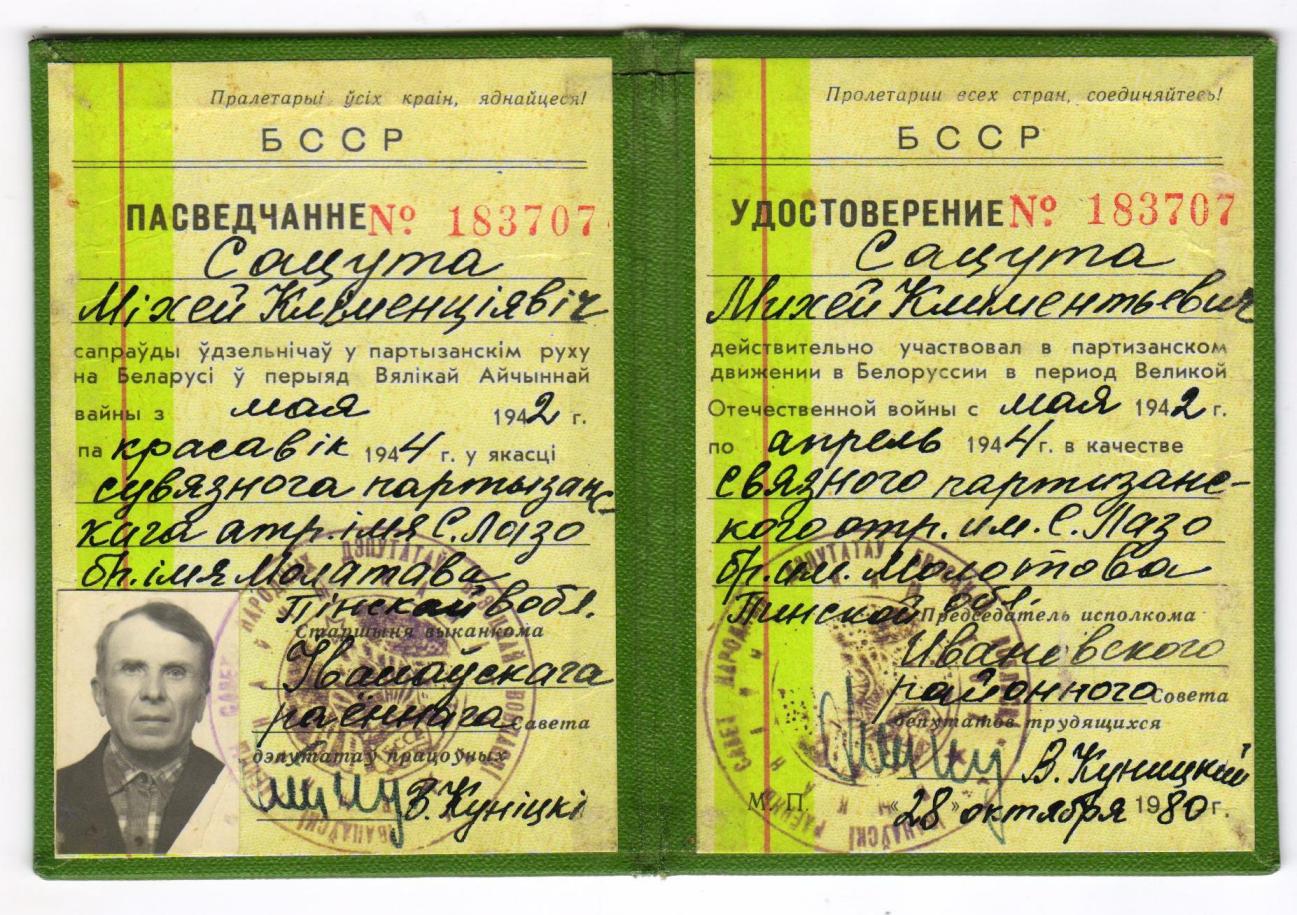 Пралетарыі ўсіх краін, яднайцеся!
БССР
ПАСВЕДЧАННЕ № 183707
Сацута
Міхей Кліменціявіч
сапраўды ўдзельнічаў у партызанскім руху
на Беларусі ў перыяд Вялікай Айчыннай
вайны з мая 1942 г.
па красавік 1944 г. у якасці
сувязнога партызанс
кага атр. імя С. Лазо
бр. імя Молатава
Пінскай вобл.
Старшыня выканкома
Іванаўскага
раённага Савета
дэпутатаў працоўных
В. Куніцкі
Пролетарии всех стран, соединяйтесь!
БССР
УДОСТОВЕРЕНИЕ № 183707
Сацута
Михей Климентьевич
действительно участвовал в партизанском
движении в Белоруссии в период Великой
Отечественной войны с мая 1942 г.
по апрель 1944 г. в качестве
связного партизанс-
кого отр. им. С. Лазо
бр. им. Молотова
Пинской обл.
Председатель исполкома
Ивановского
районного Совета
депутатов трудящихся
В. Куницкий
М. П. «28» октября 1980 г.